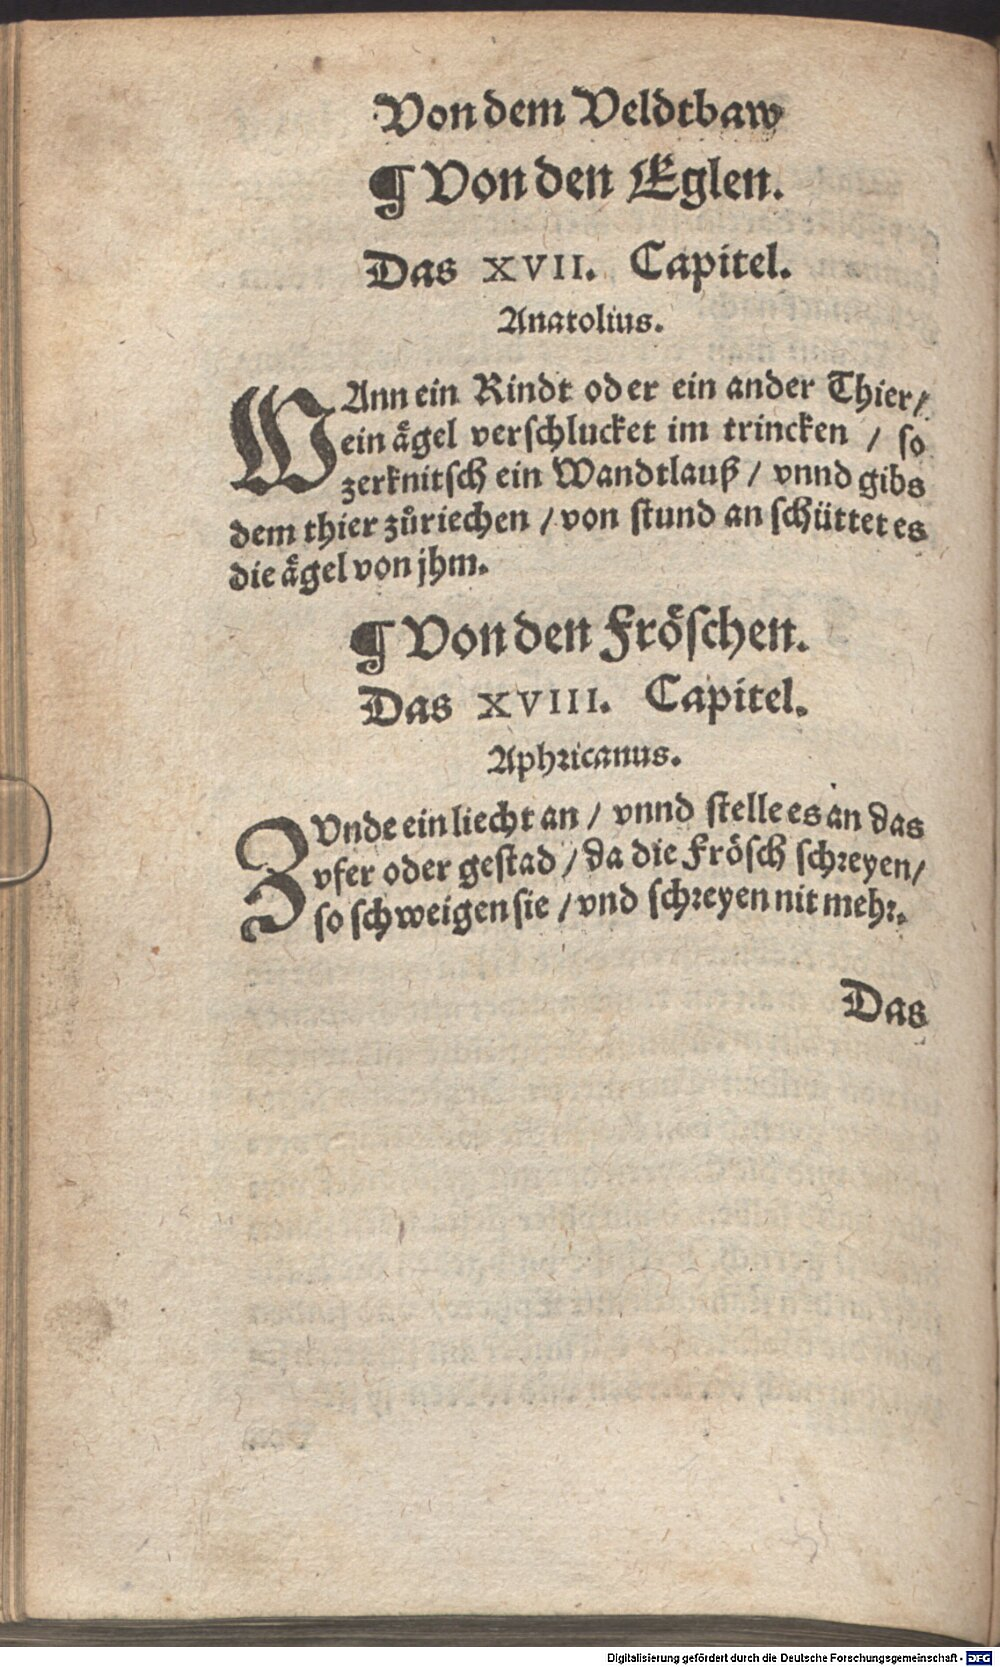 Von dem Veldtbaw
¶ Von den Eglen.
Das XVII. Capitel.
Anatolius.
WAnn ein Rindt oder ein ander Thier/
ein aͤgel verschlucket im trincken / so
zerknitsch ein Wandtlauß / vnnd gibs
dem thier zůriechen / von stund an schüttet es
die aͤgel von jhm.
¶ Von den Froͤschen.
Das XVIII. Capitel.
Aphricanus.
ZVnde ein liecht an / vnnd stelle es an das
vfer oder gestad / da die Froͤsch schreyen/
so schweigen sie / vnd schreyen nit mehr.
Das
Digitalisierung gefördert durch die Deutsche Forschungsgemeinschaft - DFG